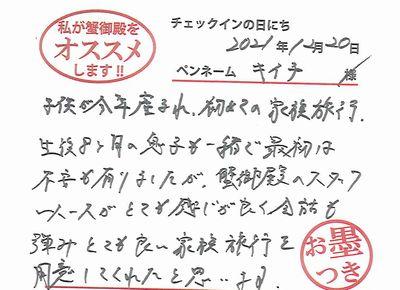 私が蟹御殿を
オススメ
します!!
チェックインの日にち
2021年12月20日
ペンネーム キイチ 様
子供が今年産まれ、初めての家族旅行。
生後8ヶ月の息子も一緒で最初は
不安も有りましたが、蟹御殿のスタッフ
一人一人がとても感じが良く会話も
弾みとても良い家族旅行を
用意してくれたと思います。
お墨
つき